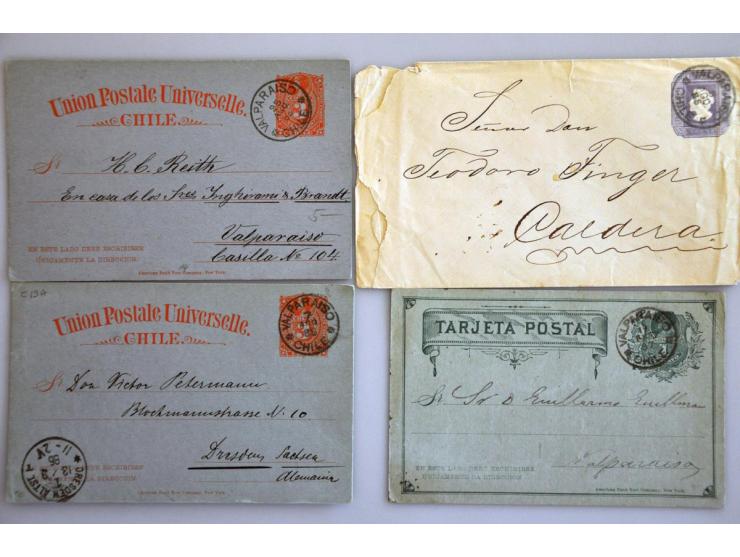 Union Postale Universelle.
CHILE.
VALPARAISO
CHILE
Sr. H. C. Reith
En casa de los Sres Inghirami & Brandt
5-
Valparaiso
Casilla No 104
EN ESTE LADO DEBE ESCRIBIRSE
ÚNICAMENTE LA DIRECCION
American Bank Note Company, New York.
VALPARAISO
CHILE
Señor Don
Teodoro Finger
Caldera
C 19A
Union Postale Universelle.
CHILE.
VALPARAISO
CHILE
Sr. Don Victor Petermann
Blochmannstrasse N. 10
Dresden, Sachsen
Alemania
DRESDEN ALTST.
EN ESTE LADO DEBE ESCRIBIRSE
LA DIRECCION
American Bank Note Company, New York.
TARJETA POSTAL
VALPARAISO
CHILE
Sr. Sr D. Guillermo
Valparaiso
EN ESTE LADO DEBE ESCRIBIRSE
ÚNICAMENTE LA DIRECCION
American Bank Note Company, New York.